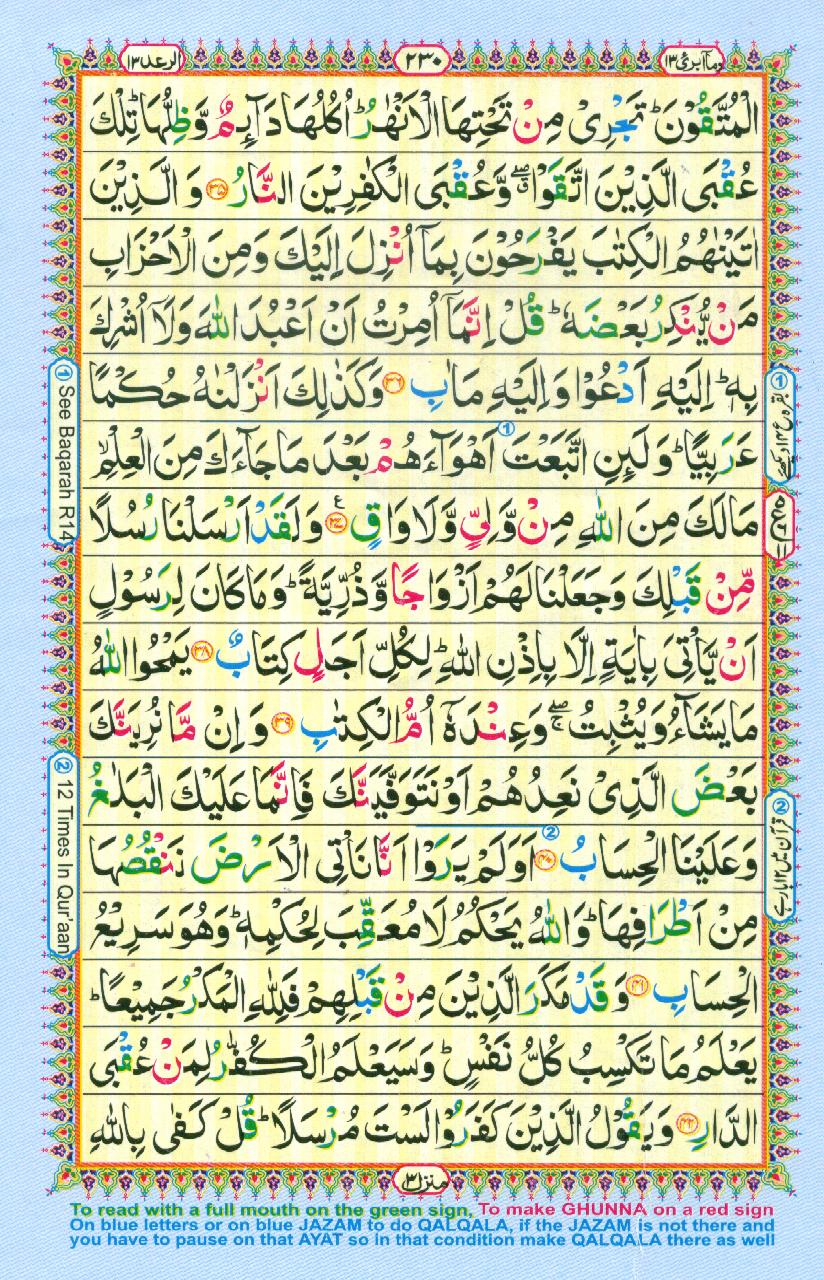 الرعد ١٣
٢٣٠
ومآ ابرئ ١٣
الْمُتَّقُوْنَ ؕ تَجْرِیْ مِنْ تَحْتِهَا الْاَنْهٰرُ ؕ اُكُلُهَا دَآىِٕمٌ وَّظِلُّهَا ؕ تِلْكَ
عُقْبَى الَّذِیْنَ اتَّقَوْا ۖۗ وَّعُقْبَى الْكٰفِرِیْنَ النَّارُ ۝۳۵ وَ الَّذِیْنَ
اٰتَیْنٰهُمُ الْكِتٰبَ یَفْرَحُوْنَ بِمَاۤ اُنْزِلَ اِلَیْكَ وَمِنَ الْاَحْزَابِ
مَنْ یُّنْكِرُ بَعْضَهٗ ؕ قُلْ اِنَّمَاۤ اُمِرْتُ اَنْ اَعْبُدَ اللّٰهَ وَلَاۤ اُشْرِكَ
بِهٖ ؕ اِلَیْهِ اَدْعُوْا وَاِلَیْهِ مَاٰبِ ۝۳۶ وَكَذٰلِكَ اَنْزَلْنٰهُ حُكْمًا
عَرَبِیًّا ؕ وَلَىِٕنِ اتَّبَعْتَ ① اَهْوَآءَهُمْ بَعْدَ مَا جَآءَكَ مِنَ الْعِلْمِ ۙ
مَا لَكَ مِنَ اللّٰهِ مِنْ وَّلِیٍّ وَّلَا وَاقٍ ۝۳۷ ع وَلَقَدْ اَرْسَلْنَا رُسُلًا
مِّنْ قَبْلِكَ وَجَعَلْنَا لَهُمْ اَزْوَاجًا وَّذُرِّیَّةً ؕ وَمَا كَانَ لِرَسُوْلٍ
اَنْ یَّاْتِیَ بِاٰیَةٍ اِلَّا بِاِذْنِ اللّٰهِ ؕ لِكُلِّ اَجَلٍ كِتَابٌ ۝۳۸ یَمْحُوا اللّٰهُ
مَا یَشَآءُ وَیُثْبِتُ ۖۚ وَعِنْدَهٗۤ اُمُّ الْكِتٰبِ ۝۳۹ وَاِنْ مَّا نُرِیَنَّكَ
بَعْضَ الَّذِیْ نَعِدُهُمْ اَوْ نَتَوَفَّیَنَّكَ فَاِنَّمَا عَلَیْكَ الْبَلٰغُ
وَعَلَیْنَا الْحِسَابُ ۝۴۰ ② اَوَلَمْ یَرَوْا اَنَّا نَاْتِی الْاَرْضَ نَنْقُصُهَا
مِنْ اَطْرَافِهَا ؕ وَاللّٰهُ یَحْكُمُ لَا مُعَقِّبَ لِحُكْمِهٖ ؕ وَهُوَ سَرِیْعُ
الْحِسَابِ ۝۴۱ وَقَدْ مَكَرَ الَّذِیْنَ مِنْ قَبْلِهِمْ فَلِلّٰهِ الْمَكْرُ جَمِیْعًا ؕ
یَعْلَمُ مَا تَكْسِبُ كُلُّ نَفْسٍ ؕ وَسَیَعْلَمُ الْكُفّٰرُ لِمَنْ عُقْبَى
الدَّارِ ۝۴۲ وَیَقُوْلُ الَّذِیْنَ كَفَرُوْا لَسْتَ مُرْسَلًا ؕ قُلْ كَفٰى بِاللّٰهِ
① See Baqarah R14
② 12 Times In Qur'aan
② قرآن میں ۱۲ بار ہے
منزل ٣
To read with a full mouth on the green sign, To make GHUNNA on a red sign
On blue letters or on blue JAZAM to do QALQALA, if the JAZAM is not there and
you have to pause on that AYAT so in that condition make QALQALA there as well